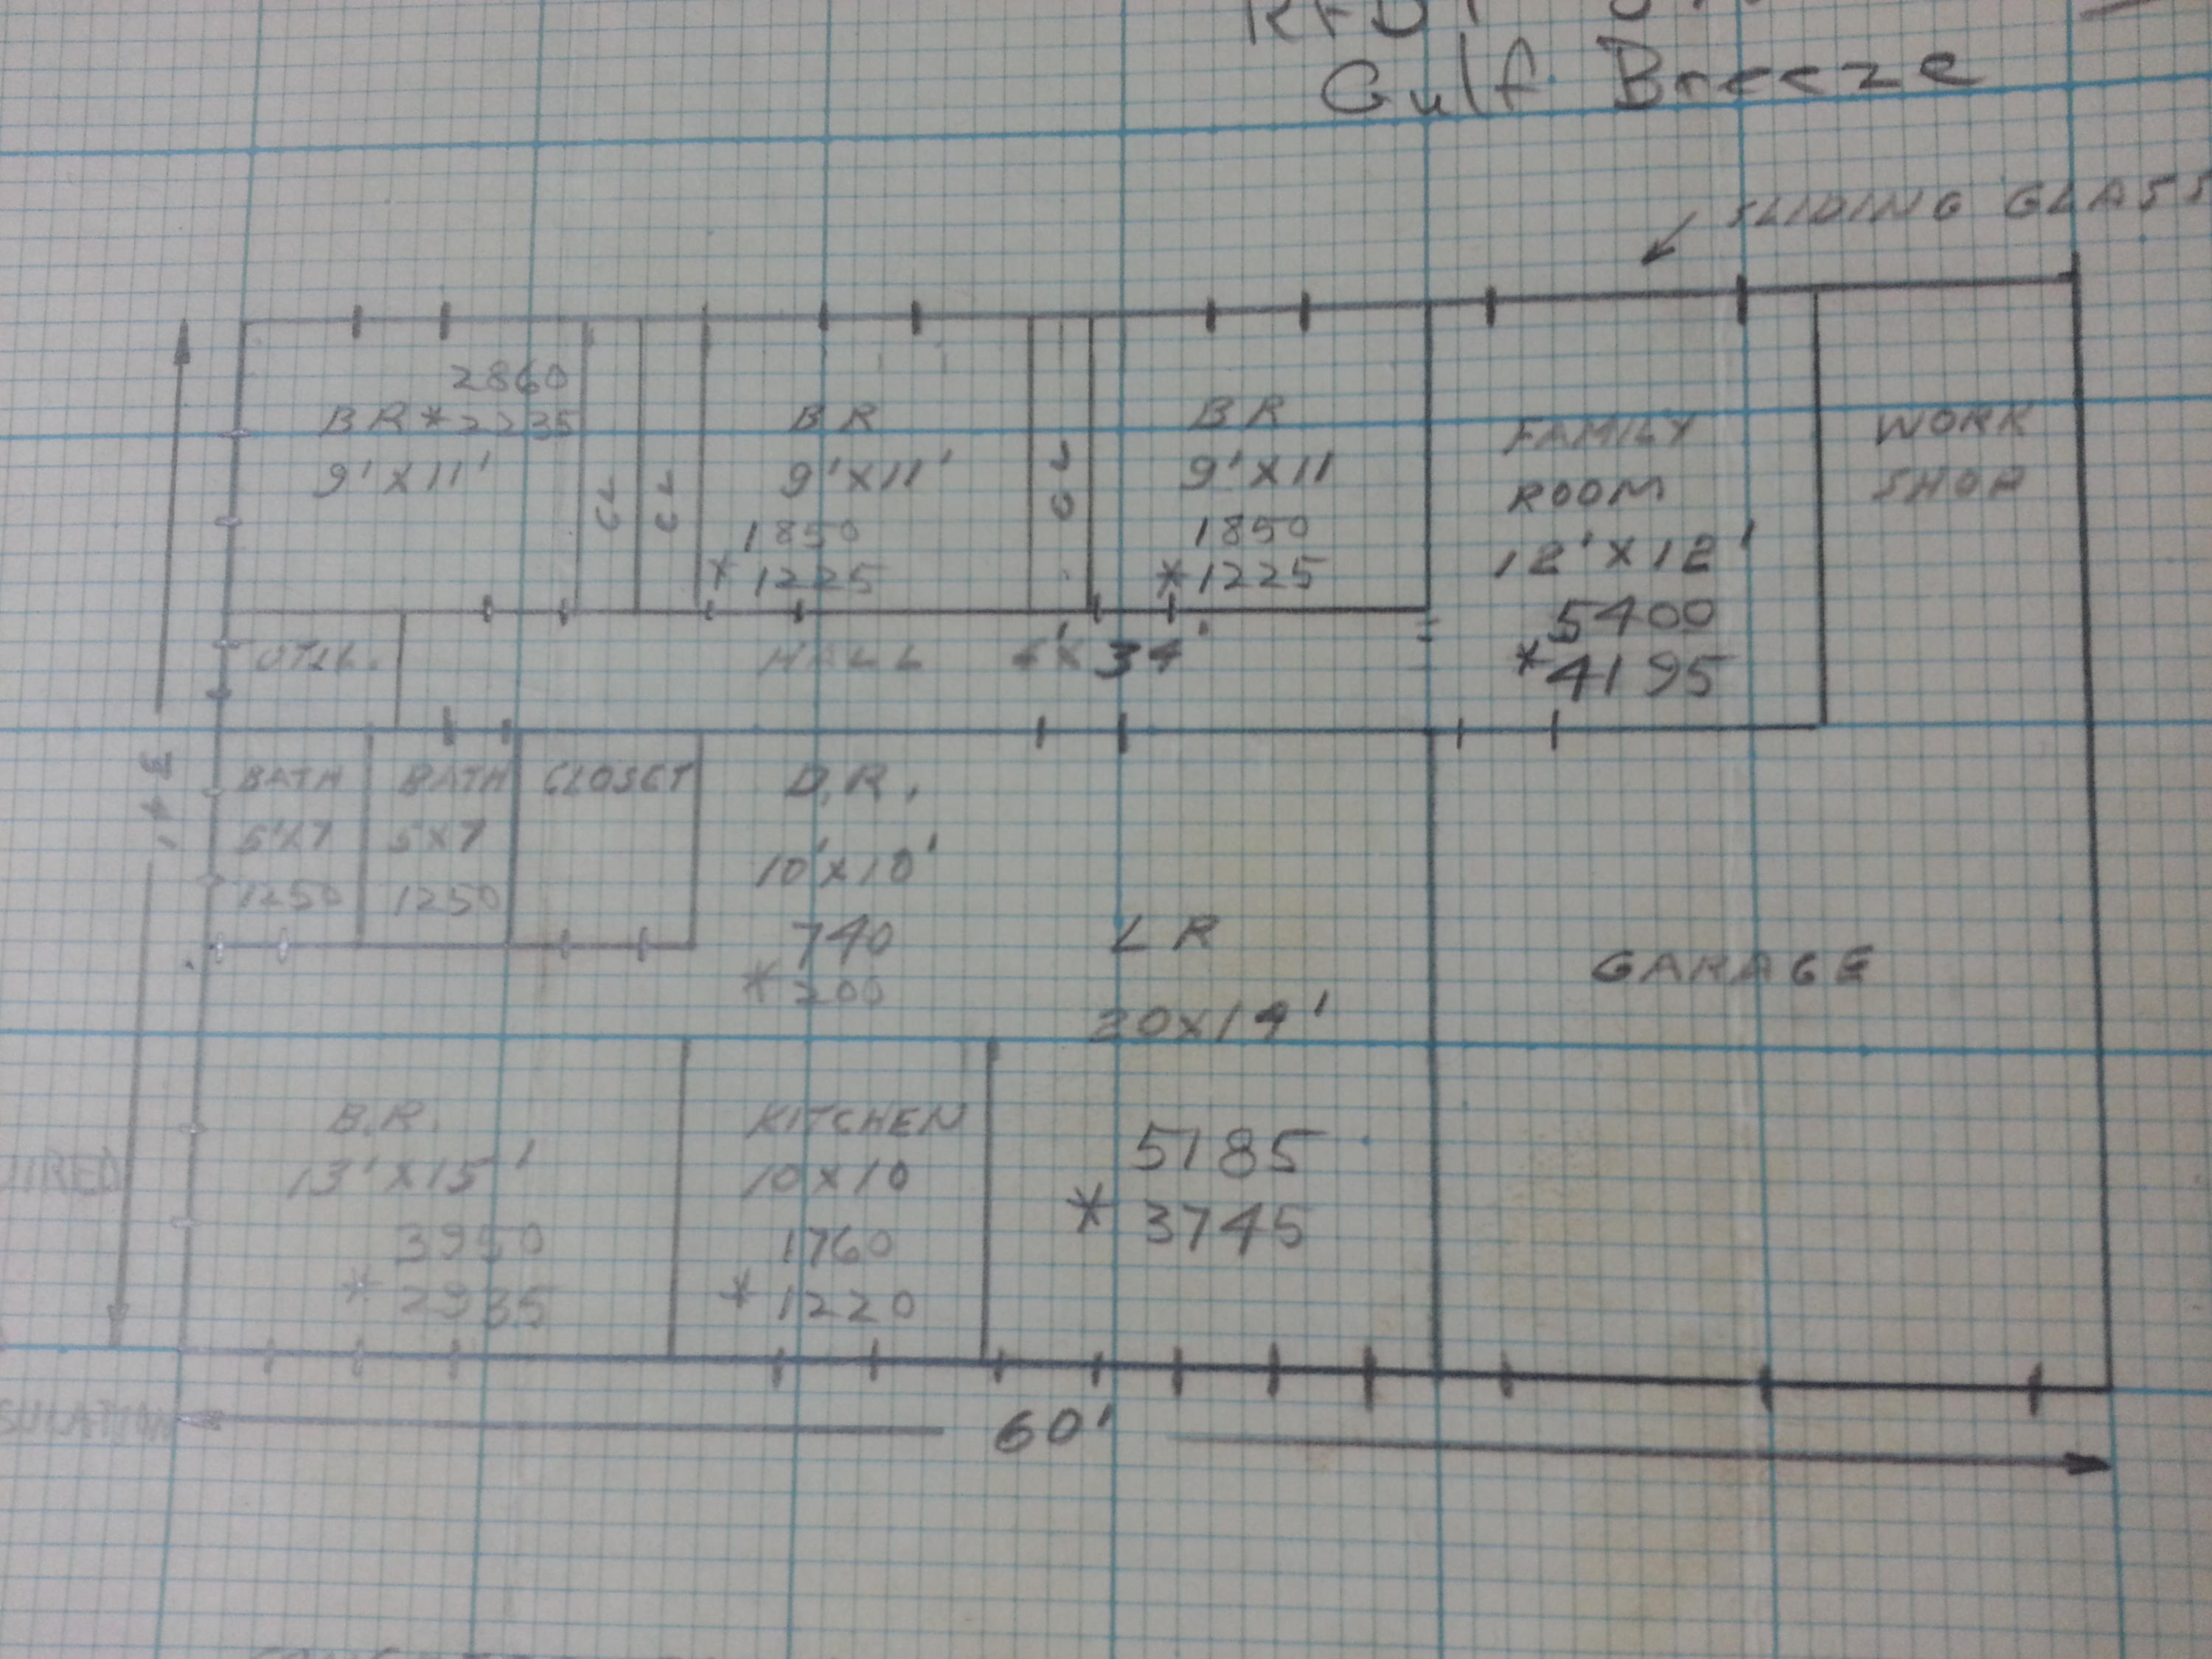 Gulf Breeze
SLIDING GLASS
2860
BR *2235
9' X 11'
CL
CL
BR
9' X 11'
1850
*1225
CL
BR
9' X 11
1850
*1225
FAMILY
ROOM
12' X 12'
5400
*4195
WORK
SHOP
UTIL.
HALL 4' X 34'
BATH
5'X7
1250
BATH
5X7
1250
CLOSET
D.R.
10' X 10'
740
*200
LR
20X14'
5185
*3745
GARAGE
B.R.
13' X 15'
3950
*2935
KITCHEN
10X10
1760
*1220
60'